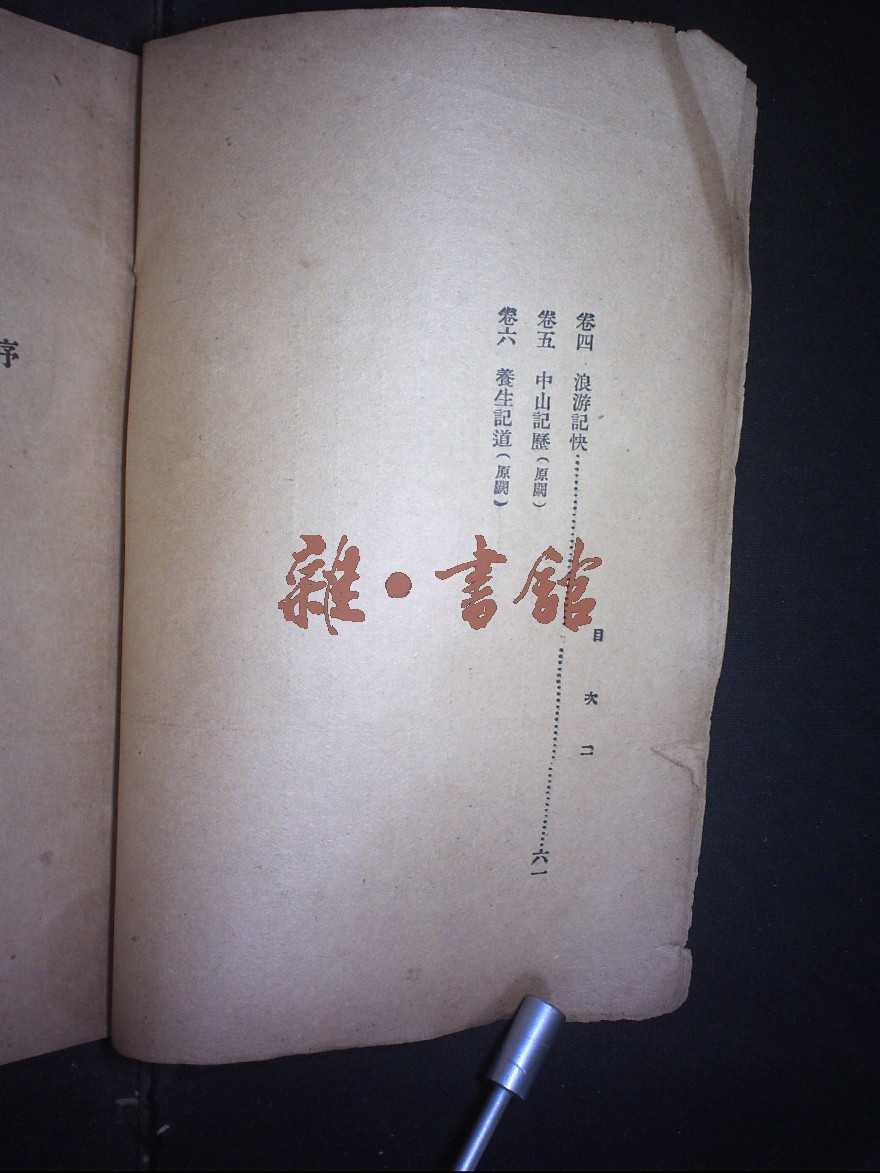 目次 二
卷四 浪游記快……六一
卷五 中山記歷（原闕）
卷六 養生記道（原闕）
序
雜·書館